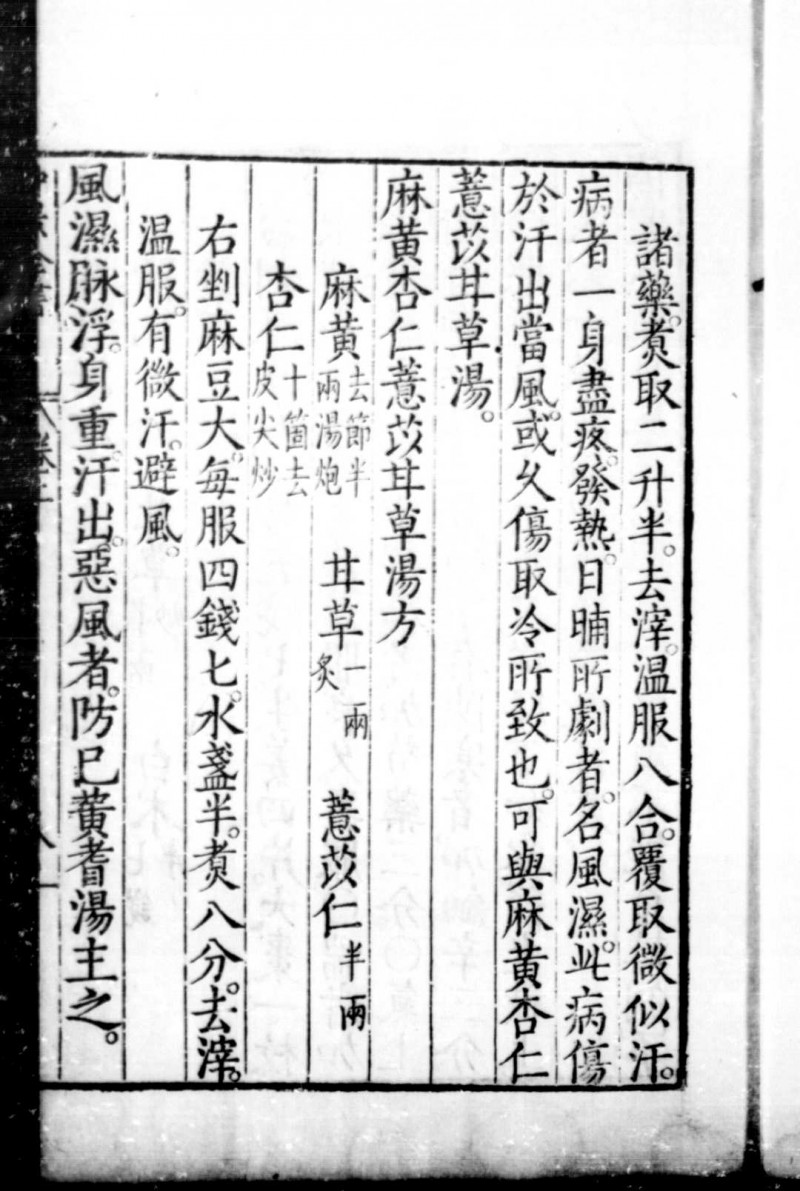 諸藥。煑取二升半。去滓。温服八合。覆取微似汗。
病者一身盡疼。發熱。日晡所劇者。名風濕。此病傷
於汗出當風。或久傷取冷所致也。可與麻黄杏仁
薏苡甘草湯。
麻黄杏仁薏苡甘草湯方
麻黄去節半兩湯炮 甘草一兩炙 薏苡仁半兩
杏仁十箇去皮尖炒
右剉麻豆大。每服四錢匕。水盞半。煑八分。去滓。
温服。有微汗。避風。
風濕脉浮。身重。汗出。惡風者。防已黄耆湯主之。